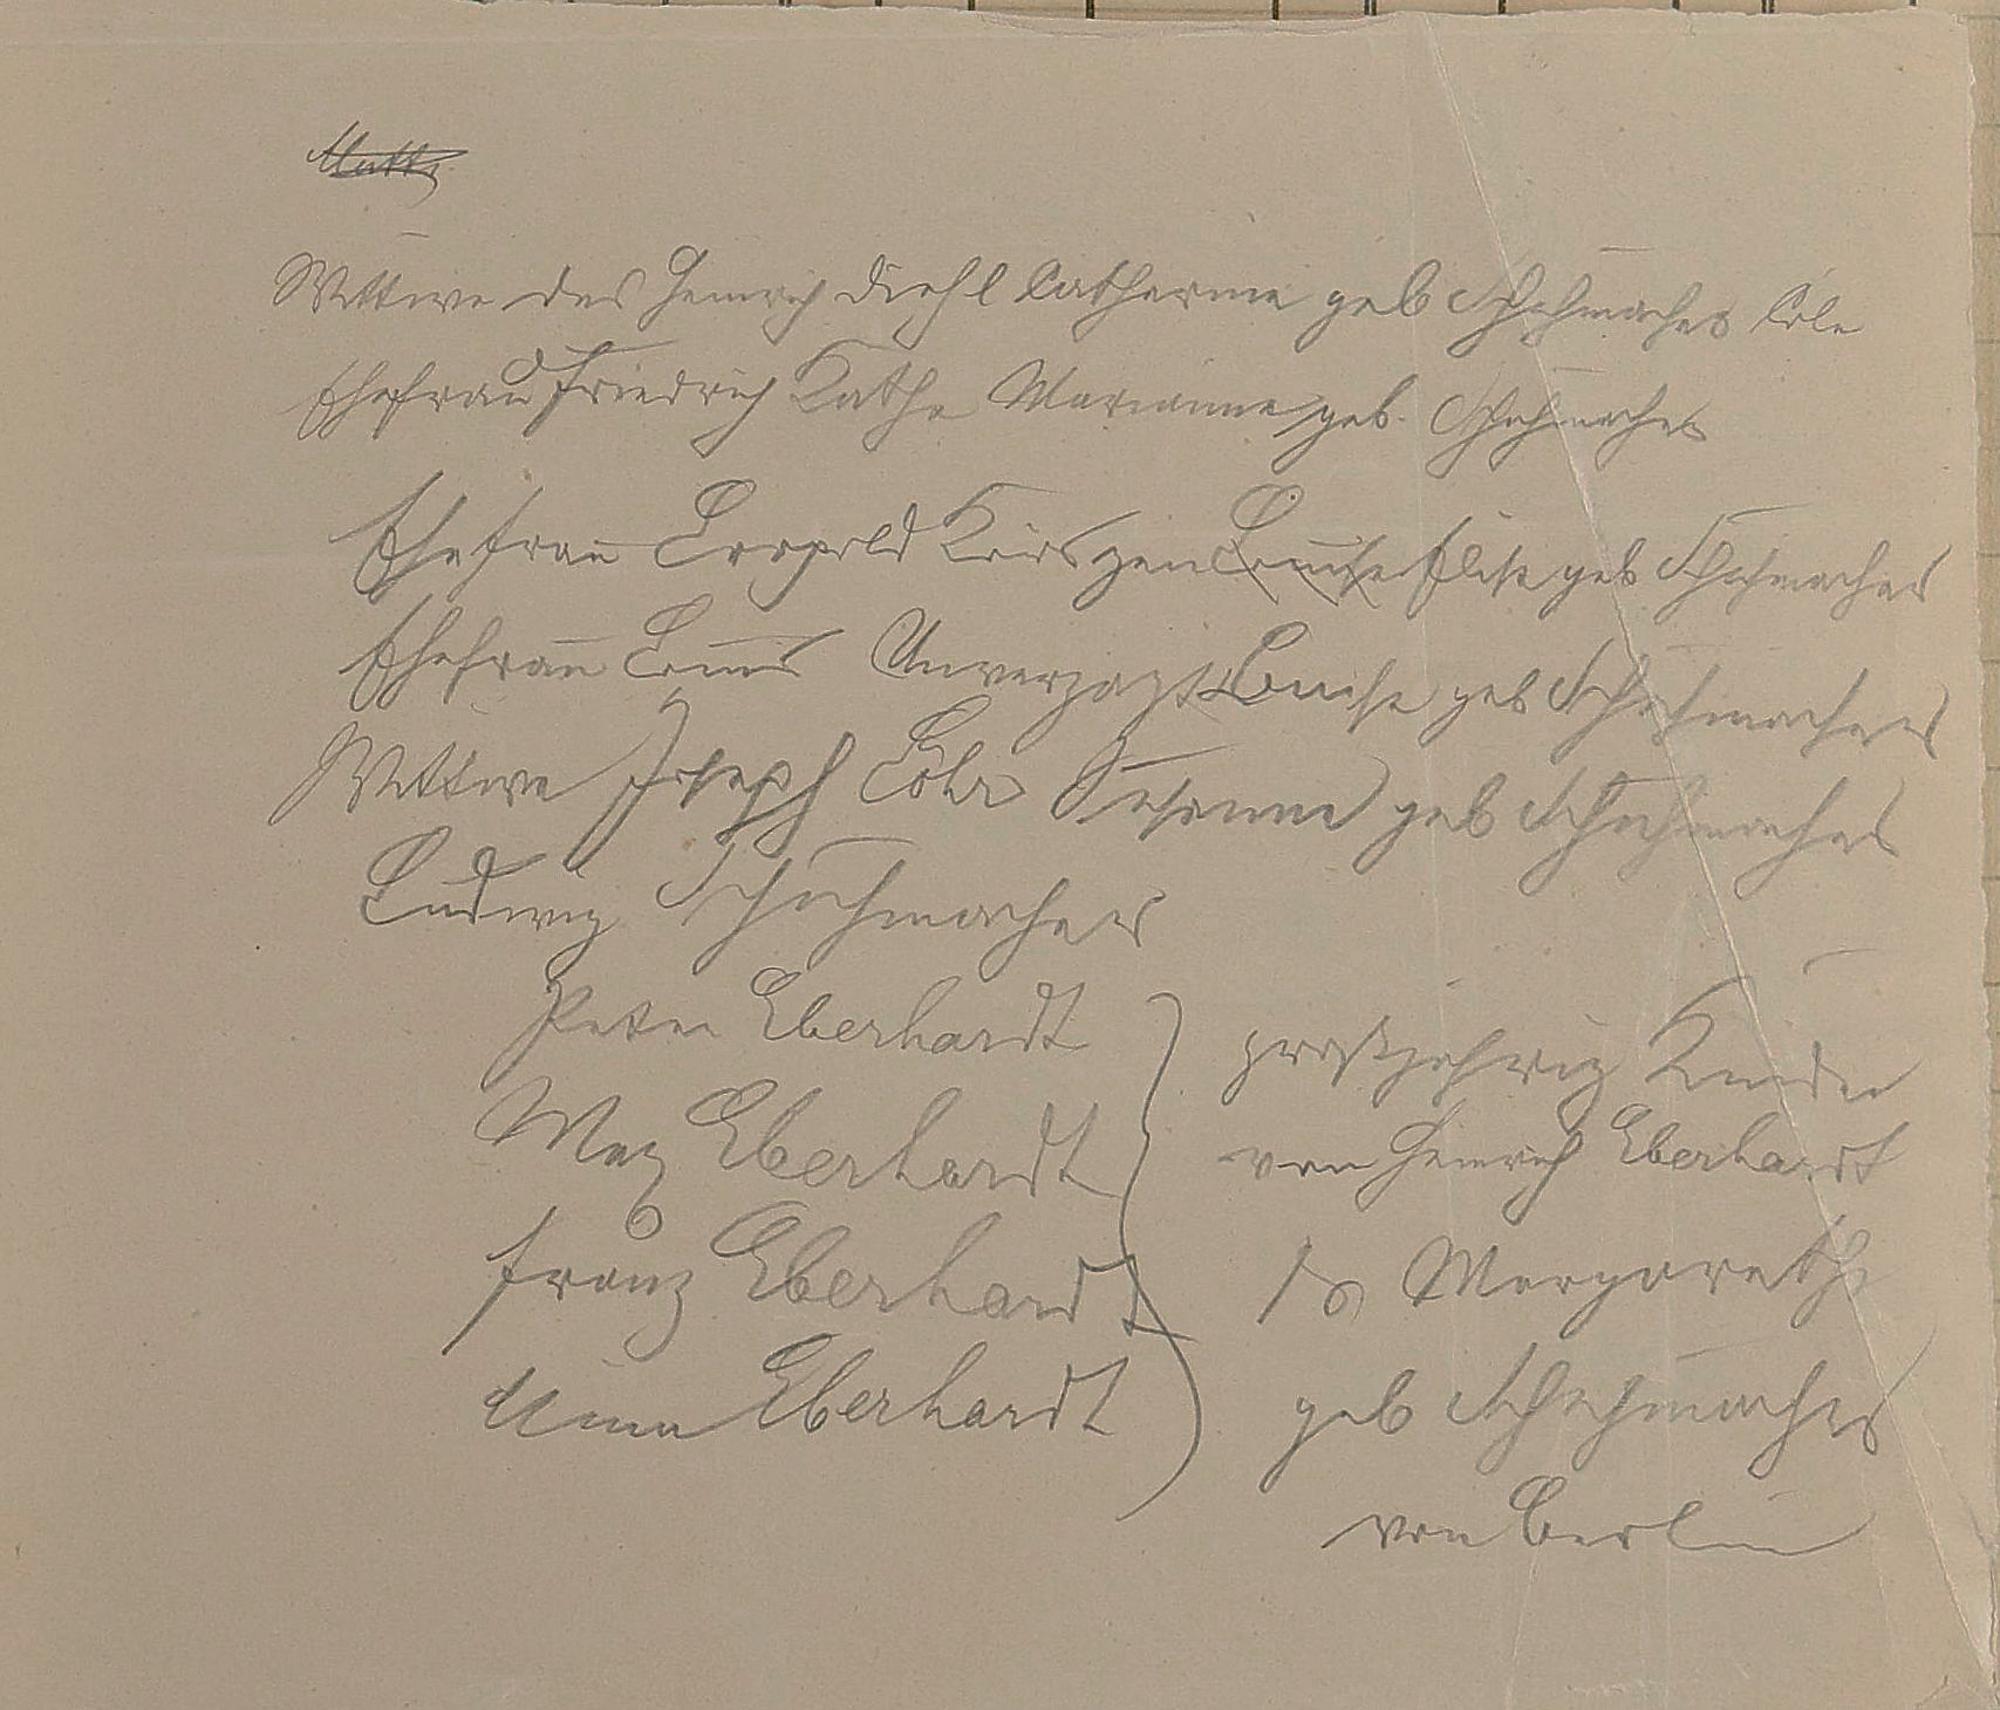 Wittwe des Heinrich Diehl Catharine geb Schuhmacher
Ehefrau Friedrich Kathe Marianne geb. Schuhmacher
Ehefrau Leopold Louise Elise geb Schuhmacher
Ehefrau Louis Unverzagt Louise geb Schuhmacher
Wittwe Joseph Löhr Susanne geb Schuhmacher
Ludwig Schuhmacher
Peter Eberhardt
Max Eberhardt
Franz Eberhardt
Nina Eberhardt
großjährig Kinder
von Heinrich Eberhardt
Margarethe
geb Schuhmacher
von Berlin